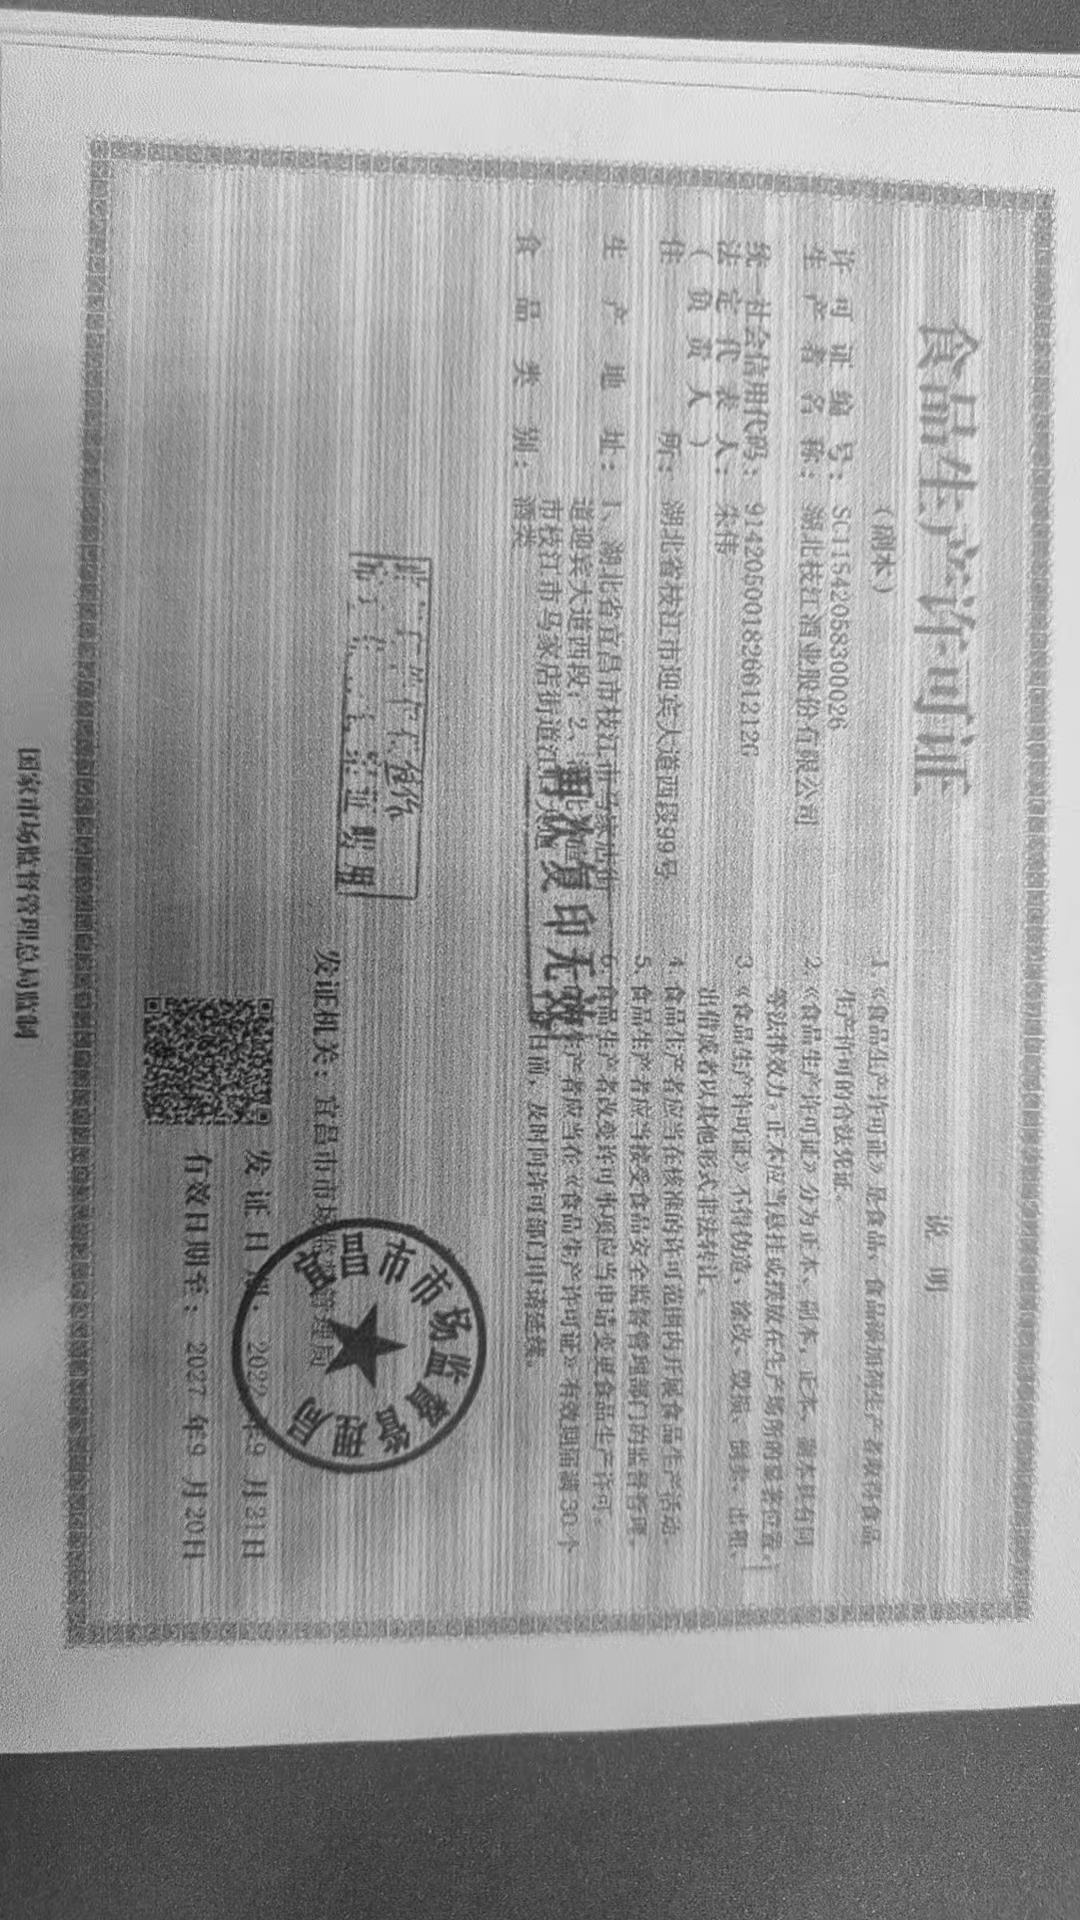 食品生产许可证
（副本）
许可证编号：SC11542058300026
生产者名称：湖北枝江酒业股份有限公司
统一社会信用代码：91420500182661212G
法定代表人：朱伟
（负责人）
住所：湖北省枝江市迎宾大道西段99号
生产地址：1、湖北省宜昌市枝江市马家店街
道迎宾大道西段；2、
市枝江市马家店街道
食品类别：酒类
再次复印无效
证明用
说明
1.《食品生产许可证》是食品、食品添加剂生产者取得食品
生产许可的合法凭证。
2.《食品生产许可证》分为正本、副本。正本、副本具有同
等法律效力，正本应当悬挂或摆放在生产场所的显著位置。
3.《食品生产许可证》不得伪造、涂改、毁损、倒卖、出租、
出借或者以其他形式非法转让。
4.食品生产者应当在核准的许可范围内开展食品生产活动。
5.食品生产者应当接受食品安全监督管理部门的监督管理。
6.食品生产者改变许可事项应当申请变更食品生产许可。
生产者应当在《食品生产许可证》有效期届满30个
日前，及时向许可部门申请延续。
发证机关：宜昌市市场监督管理局
宜昌市市场监督管理局
发证日期：2022年9月21日
有效日期至：2027年9月20日
国家市场监督管理总局监制